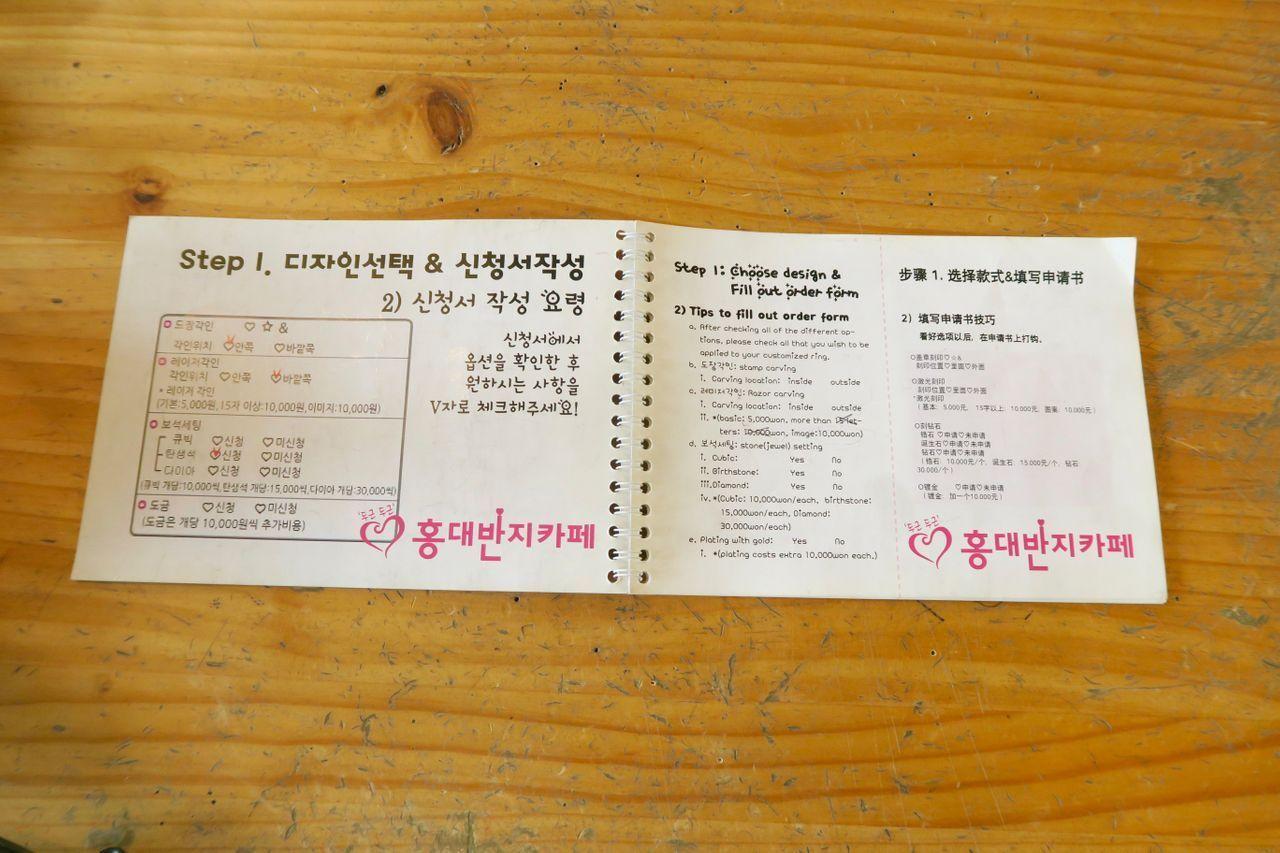 Step 1. 디자인선택 & 신청서작성
2) 신청서 작성 요령
도장각인 ♡ ☆ &
각인위치 ♡안쪽 ♡바깥쪽
레이저각인
각인위치 ♡안쪽 ♡바깥쪽
* 레이저 각인
(기본:5,000원, 15자 이상:10,000원,이미지:10,000원)
보석세팅
큐빅 ♡신청 ♡미신청
탄생석 ♡신청 ♡미신청
다이아 ♡신청 ♡미신청
(큐빅 개당:10,000씩,탄생석 개당:15,000씩,다이아 개당:30,000씩)
도금 ♡신청 ♡미신청
(도금은 개당 10,000원씩 추가비용)
신청서에서
옵션을 확인한 후
원하시는 사항을
V자로 체크해주세요!
'두근 두근'
홍대반지카페
Step 1: Choose design &
Fill out order form
2) Tips to fill out order form
a. After checking all of the different op-
tions, please check all that you wish to be
applied to your customized ring.
b. 도장각인: stamp carving
i. Carving location: inside outside
c. 레이저각인: Razor carving
i. Carving location: inside outside
ii. *(basic: 5,000won, more than 15 let-
ters: 10,000won, image:10,000won)
d. 보석세팅: stone(jewel) setting
i. Cubic: Yes No
ii. Birthstone: Yes No
iii. Diamond: Yes No
iv. *(Cubic: 10,000won/each, birthstone:
15,000won/each, Diamond:
30,000won/each)
e. Plating with gold: Yes No
i. *(plating costs extra 10,000won each.)
步骤 1. 选择款式&填写申请书
2) 填写申请书技巧
看好选项以后，在申请书上打钩。
○盖章刻印♡☆&
刻印位置♡里面♡外面
○激光刻印
刻印位置♡里面♡外面
*激光刻印
(基本: 5.000元, 15字以上: 10.000元, 图案: 10.000元)
○刻钻石
锆石 ♡申请♡未申请
诞生石♡申请♡未申请
钻石♡申请♡未申请
(锆石: 10.000元/个, 诞生石: 15.000元/个, 钻石:
30.000/个)
○镀金 ♡申请♡未申请
(镀金: 加一个10.000元)
'두근 두근'
홍대반지카페